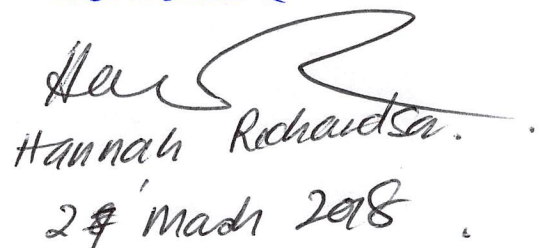 Hannah Richardson.
March 2018